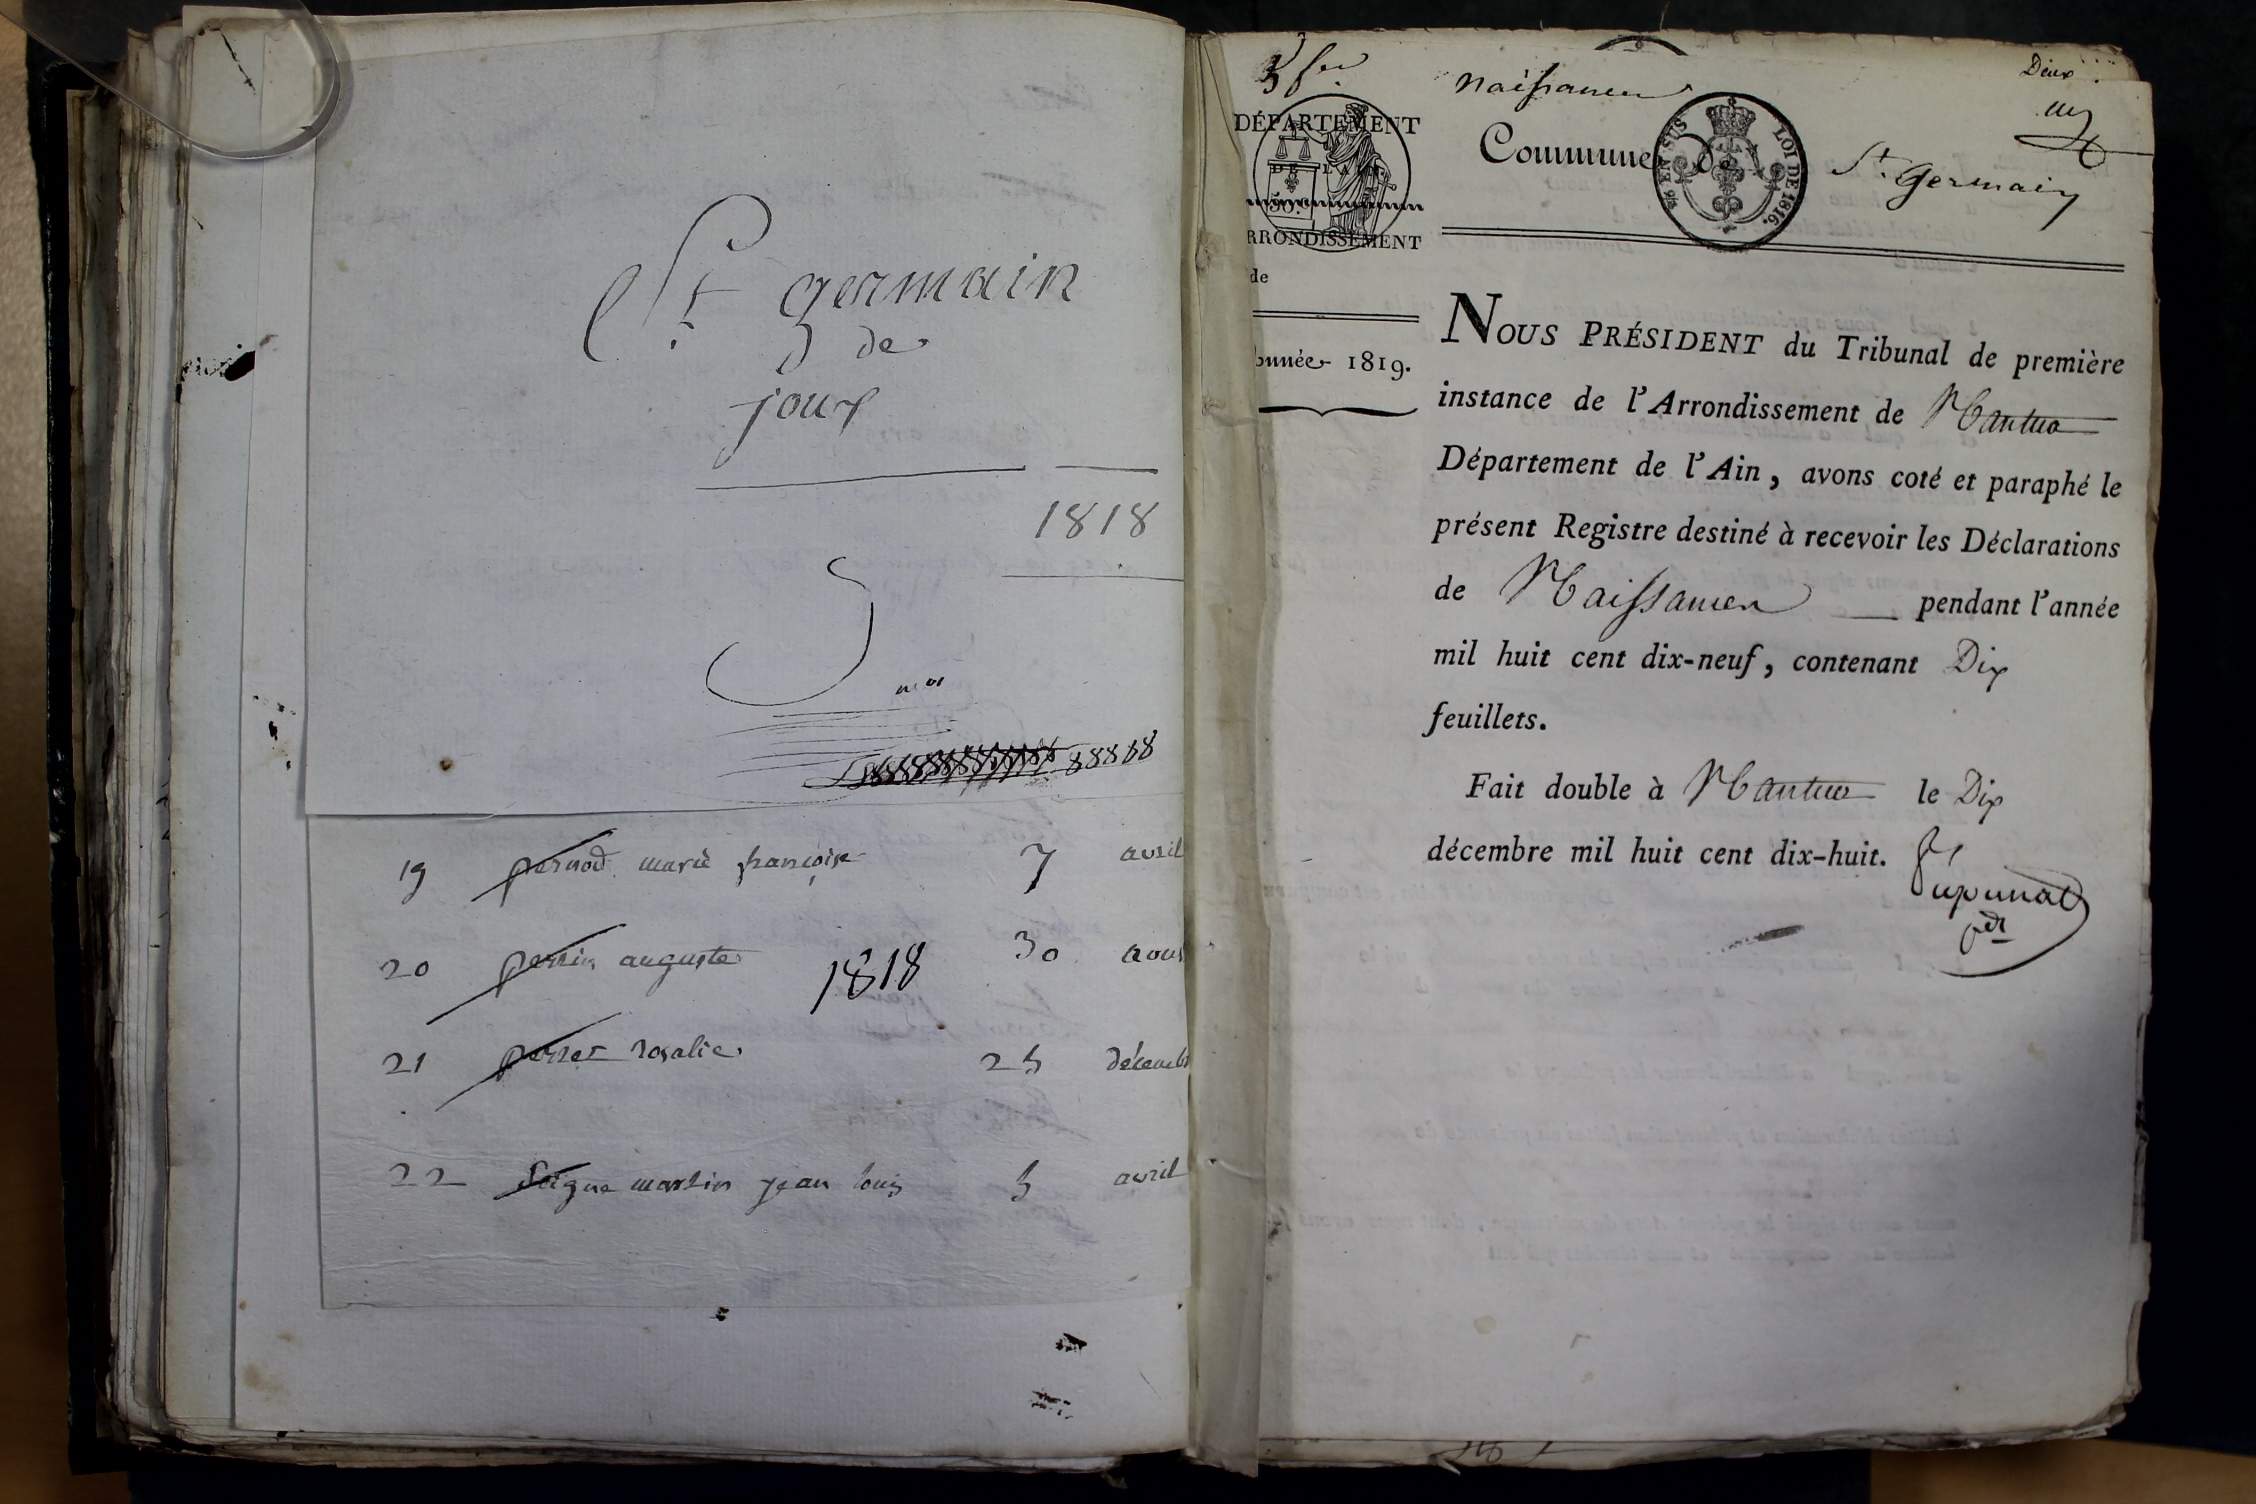 St germain
de
joux
1818
88888
19 pernod marie françoise 7 avril
20 perrin auguste 30 aous
1818
21 perret rosalie 25 décemb
22 Seigne martin jean louis 5 avril
naissances
Deux
DÉPARTEMENT
DE L'AIN.
50.c
RRONDISSEMENT
de
année 1819.
Commune de St. Germain
EN SUS LOI DE 1816.
NOUS PRÉSIDENT du Tribunal de première
instance de l'Arrondissement de Nantua
Département de l'Ain, avons coté et paraphé le
présent Registre destiné à recevoir les Déclarations
de Naissances pendant l'année
mil huit cent dix-neuf, contenant Dix
feuillets.
Fait double à Nantua le Dix
décembre mil huit cent dix-huit.